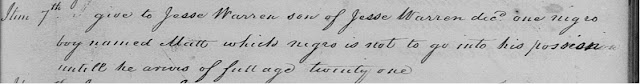 Item 7th I give to Jesse Warren son of Jesse Warren decd one negro
boy named Matt which negro is not to go into his possion
untill he arives of full age twenty one